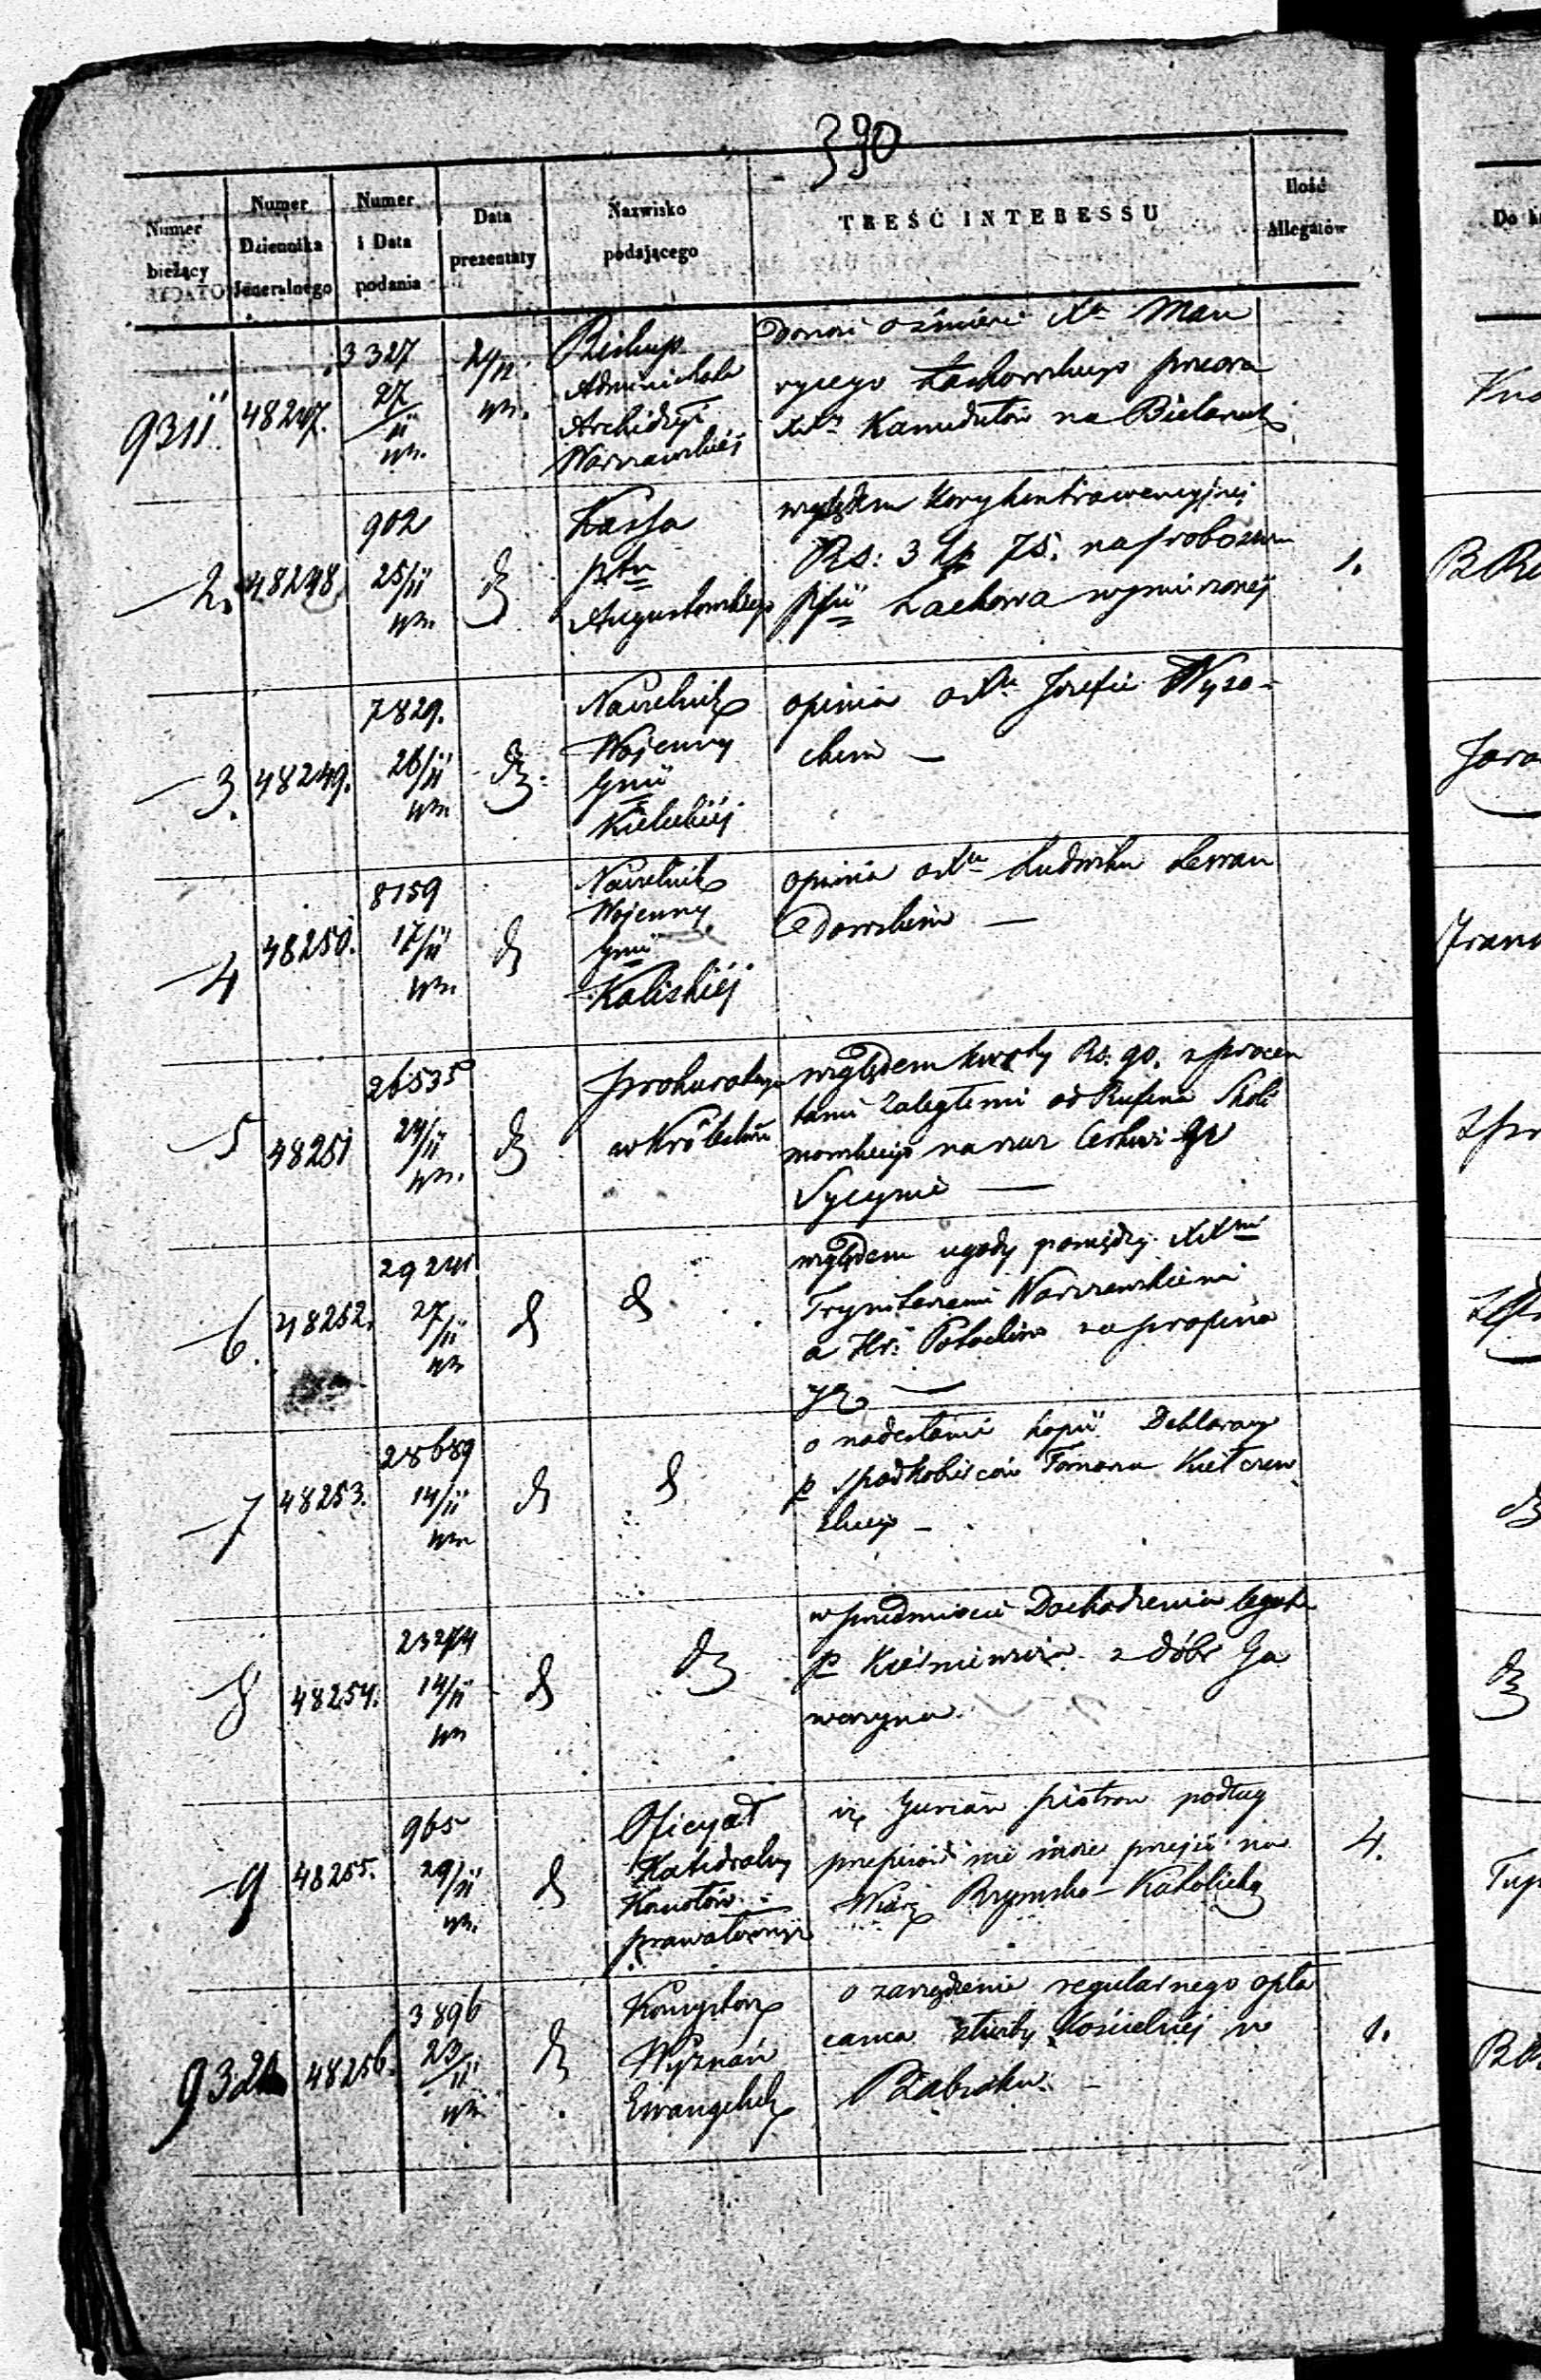 390
Numer bieżący
Numer Dziennika Jeneralnego
Numer i Data podania
Data prezentaty
Nazwisko podającego
TREŚĆ INTERESSU
Ilość Allegatów
9311
48247.
3327
27/11
24/11
Biskup
Administrator
Archidyi
Warszawskiej
Donosi o śmierci Xa Mau
rycego Lachowskiego przeora
XXw Kamedułów na Bielanach
2.
48248
902
25/11
Kassa
ptu
Augustowskiego
względem kary kontrawencyjnej
Rs: 3 kp 75. na proboszcza
pfii Lachowa wymierzonej
1.
3.
48249.
7829.
26/11
Naczelnik
Wojenny
Gnii
Kieleckiej
opinia o Xu Józefie Wyso-
ckim —
4
48250.
8159
17/11
Naczelnik
Wojenny
Gnii
Kaliskiej
opinia o Xu Ludwiku Lewan
dowskim —
5
48251
26535
24/11
Prokuratorya
w Królestwie
względem kwoty Rs. 90. z procen
tami zaległemi od Rufina Skoli
mowskiego na rzecz Cerkwi
Sycynie —
6.
48252.
29241
27/11
względem ugody pomiędzy XXmi
Trynitarzami Warszawskiemi
a Hr: Potockim za propina
7
48253.
28689
14/11
o nadesłanie kopii Deklaracyi
p Spadkobierców Tomasza Kiełczew
skiego —
8
48254.
23274
14/11
w przedmiocie Dochodzenia legatu
p z dóbr Ga
woryna
9
48255.
965
29/11
Oficyał
Katedralny
iż Gurian Piotrow podług
przepisów nie może przejść na
Wiarę Rzymsko-Katolicką
4.
9320
48256.
3896
23/11
Konsystorz
Wyznań
Ewangelick
o zarządzenie regularnego opła
cania służby kościelnej w
1.